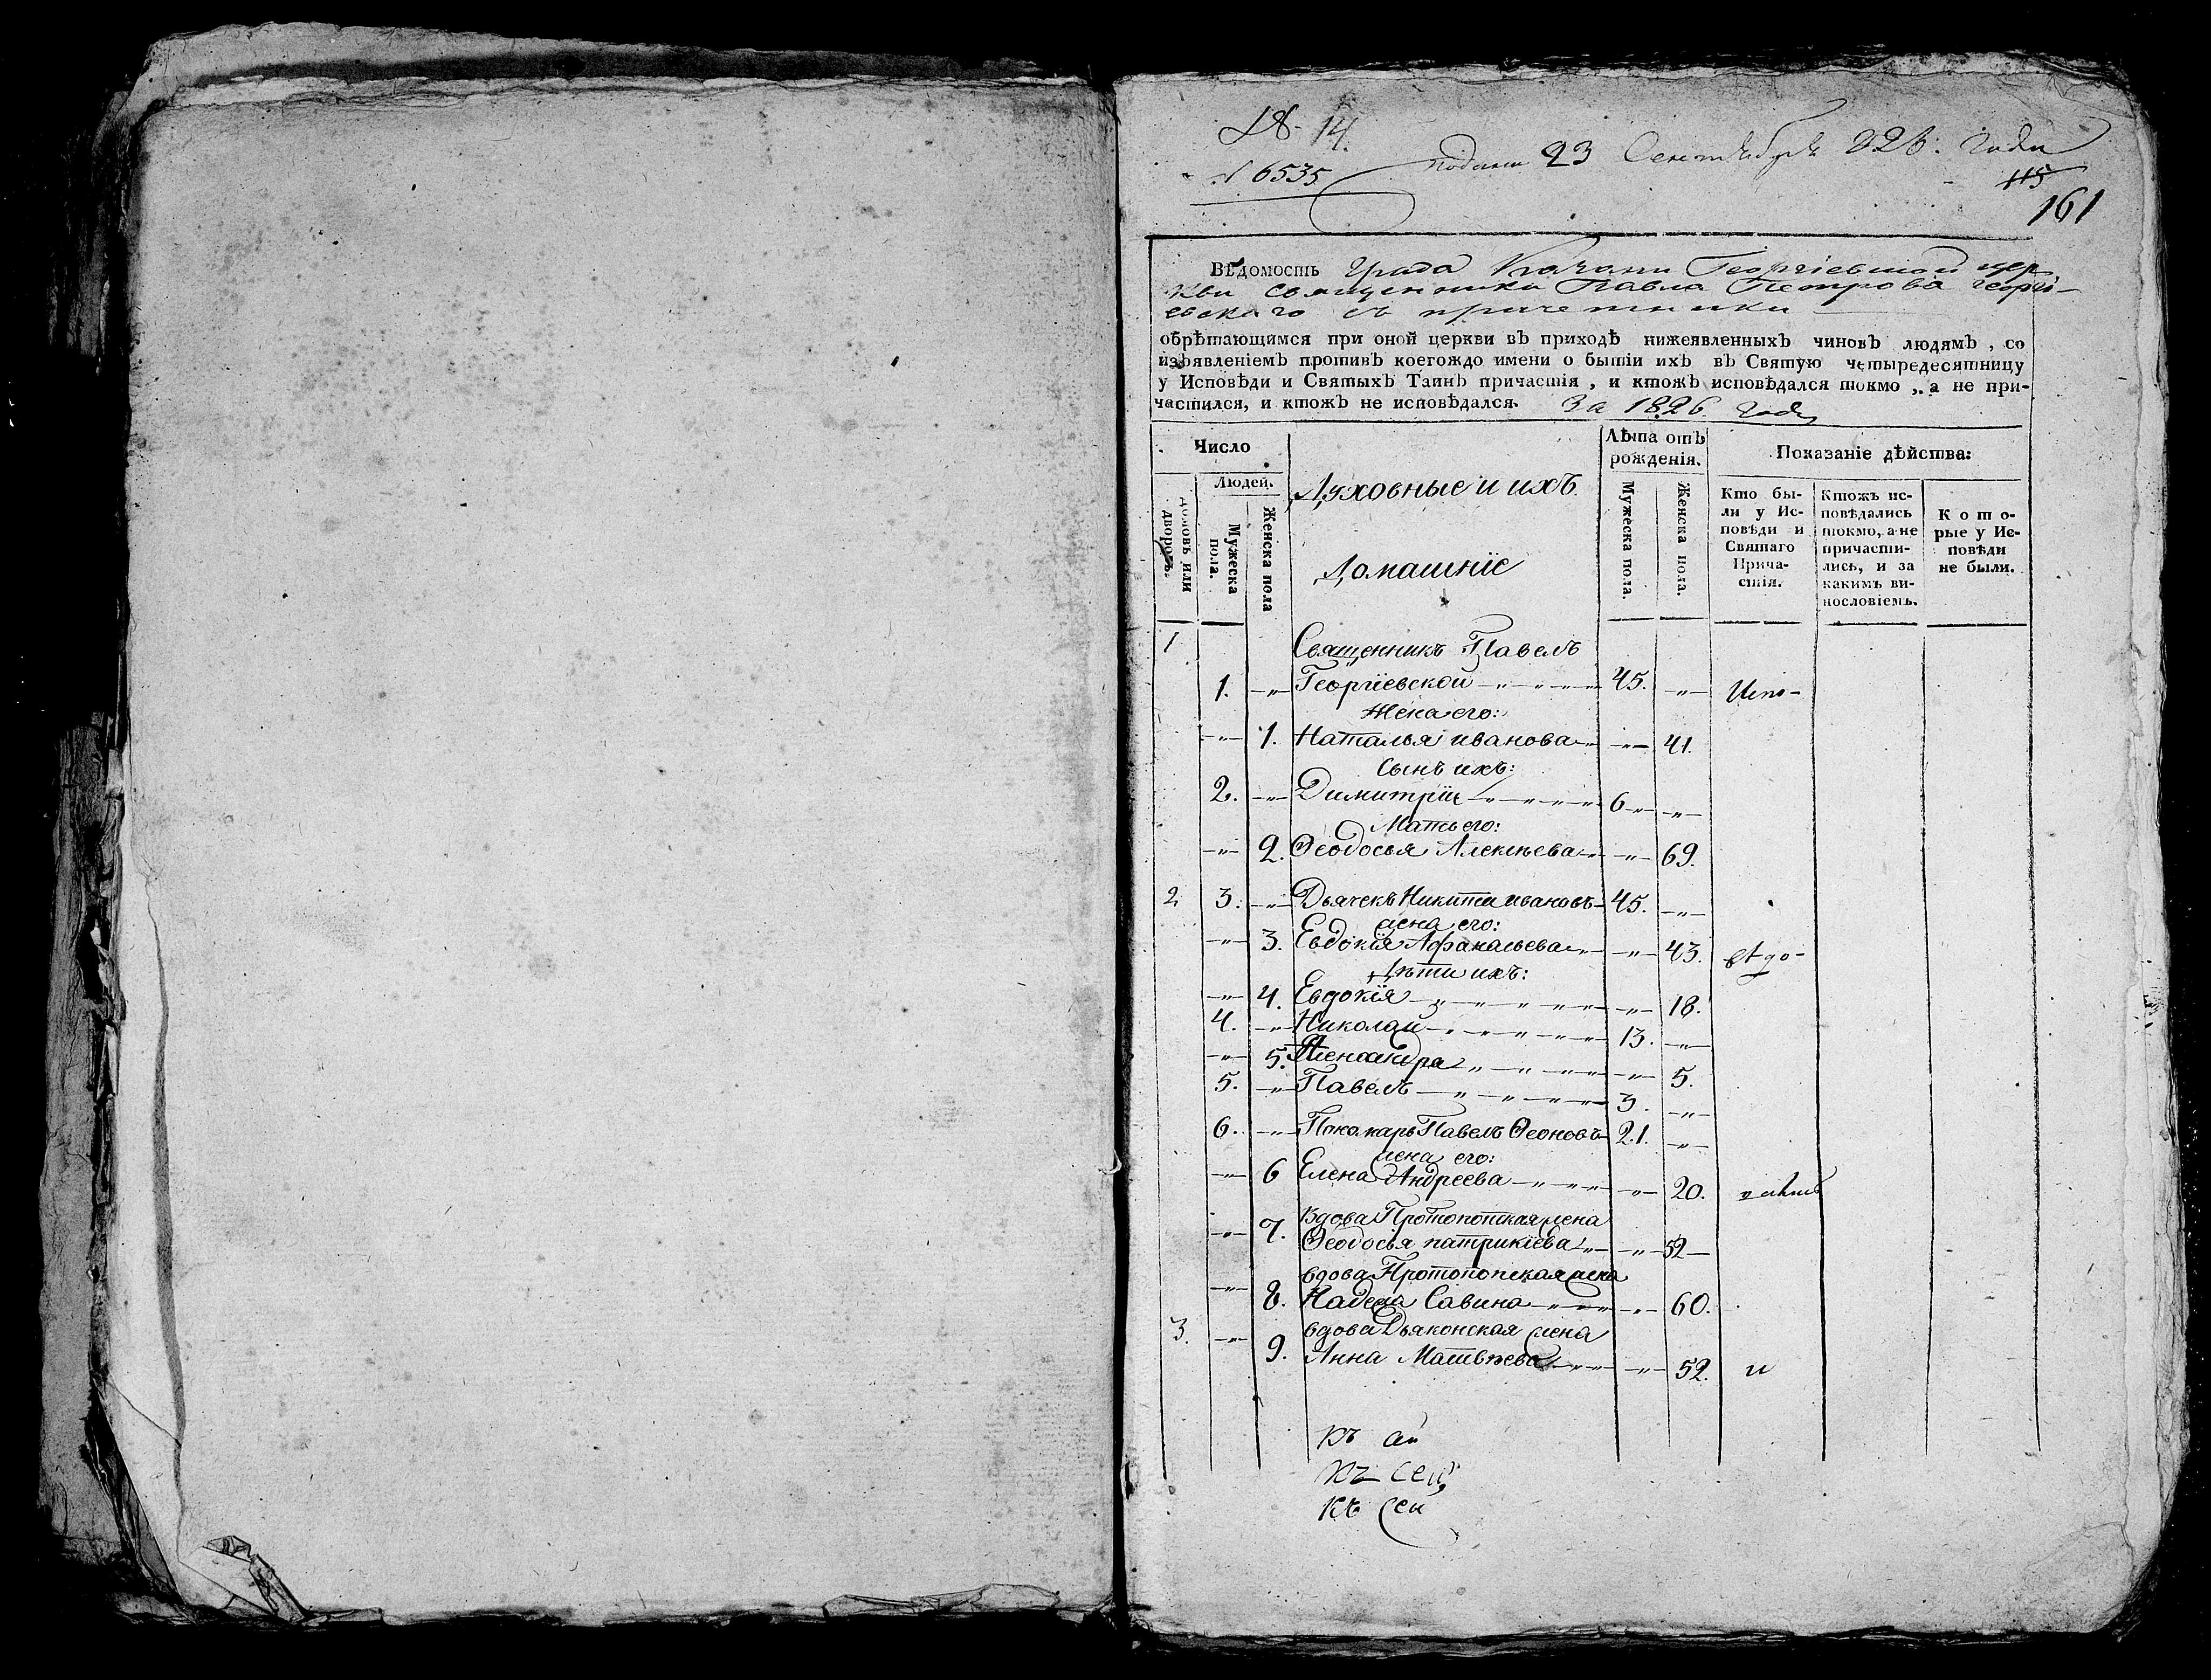 № 14.
№ 6535
подана 23 Сентября 826. года
115
161
ВѢдомость Града Казани Георгіевской цер
кви священника Павла Петрова Георгі-
евскаго съ причетники
обрѣтающимся при оной церкви въ приходѣ нижеявленныхъ чиновъ людямъ, со
изъявленіемъ противъ коегождо имени о бытіи ихъ въ Святую четыредесятницу
у Исповѣди и Святыхъ Таинъ причастія, и ктожъ исповѣдался токмо, а не при-
частился, и ктожъ не исповѣдался. За 1826 годъ
Число
Людей.
домовъ или дворовъ.
Мужеска пола.
Женска пола
Духовные и ихъ
Домашніе
Лѣта отъ
рожденія.
Мужеска пола.
Женска пола.
Показаніе дѣйства:
Кто бы-
ли у Ис-
повѣди и
Святаго
Прича-
стія.
Ктожъ ис-
повѣдались
токмо, а не
причасти-
лись, и за
какимъ ви-
нословіемъ.
К о т о-
рые у Ис-
повѣди
не были.
1 Священникъ Павелъ
1. —„— Георгіевской 45. —„— Испо-
Жена его:
—„— 1. Наталья иванова —„— 41.
Сынъ ихъ:
2. —„— Димитріи 6 —„—
Мать его:
—„— 2. Ѳеодосья Алексѣева —„— 69.
2 3. —„— Дьячекъ Никита ивановъ 45. —„—
жена его:
—„— 3. Евдокія Афанасьева —„— 43.
Дѣти ихъ:
—„— 4. Евдокія —„— 18.
4. —„— Николаи 13. —„—
—„— 5. Александра —„— 5.
5. —„— Павелъ 3. —„—
6. —„— Понамарь Павелъ Ѳеоновъ 21. —„—
жена его:
—„— 6 Елена Андреева —„— 20.
вдова Протопопская жена
—„— 7. Ѳеодосья патрикіева —„— 52
вдова Протопопская жена
—„— 8. Надежда Савина —„— 60.
3. вдова Дьяконская жена
—„— 9. Анна Матвѣева —„— 52. и
къ
къ сей
къ сей